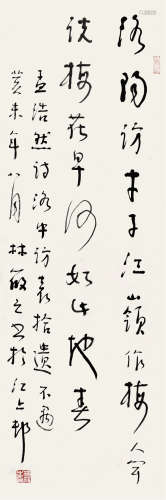 洛陽访才子江嶺作流人闻
说梅花早何如此地春
孟浩然诗洛中访袁拾遗不遇
癸未年八月林筱之书於江上邨